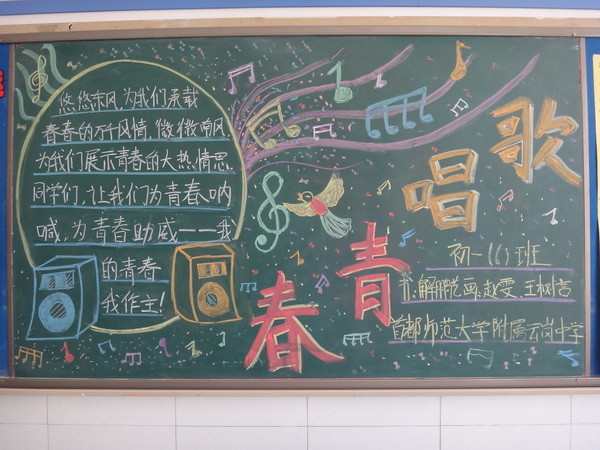 歌唱
青春
悠悠东风,为我们承载
春春的万千风情,微微南风,
为我们展示青春的大热情思.
同学们,让我们为青春呐
喊,为青春助威——我
的青春
我作主!
初一班
画:赵雯、王树言
首都师范大学附属云岗中学